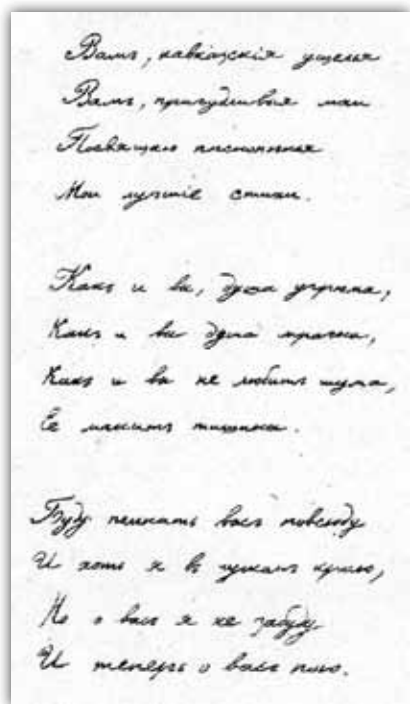 Вамъ, кавказскія ущелья
Вамъ, причудливыя мхи
Посвящаю песнопенья
Мои лучшіе стихи.
Какъ и вы, душа угрюма,
Какъ и вы душа мрачна,
Какъ и вы не любитъ шума,
Ее манитъ тишина.
Буду помнить васъ повсюду
И хоть я въ чужомъ краю,
Но о васъ я не забуду
И теперь о васъ пою.